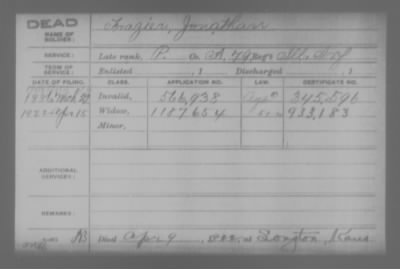 DEAD
NAME OF SOLDIER: Frazier, Jonathan
SERVICE: Late rank, P. Co. A, 79 Reg't Ill. Inf
TERM OF SERVICE: Enlisted , 1 Discharged , 1
DATE OF FILING. CLASS. APPLICATION NO. LAW. CERTIFICATE NO.
1886 Mch 29 Invalid, 566,938 345,596
1922 Apr 15 Widow, 1187654 933,183
Minor,
ADDITIONAL SERVICES:
REMARKS:
Died Apr 9 at Longton, Kans